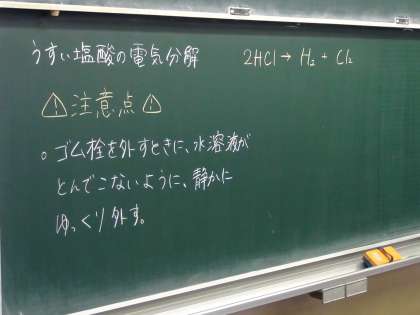 うすい塩酸の電気分解 2HCl → H₂ + Cl₂
⚠注意点⚠
○ ゴム栓を外すときに、水溶液が
とんでこないように、静かに
ゆっくり外す。